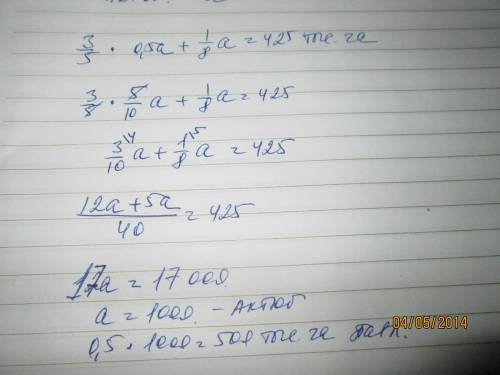 3/5 · 0,5a + 1/8 a = 425 тыс. га
3/5 · 5/10 a + 1/8 a = 425
3/10 \4 a + 1/8 \5 a = 425
12a + 5a / 40 = 425
17a = 17 000.
a = 1000. – Актюб
0,5 · 1000 = 500 тыс. га
04/05/2014